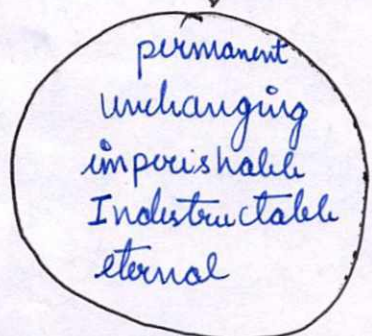 permanent
unchanging
imperishable
Indestructable
eternal